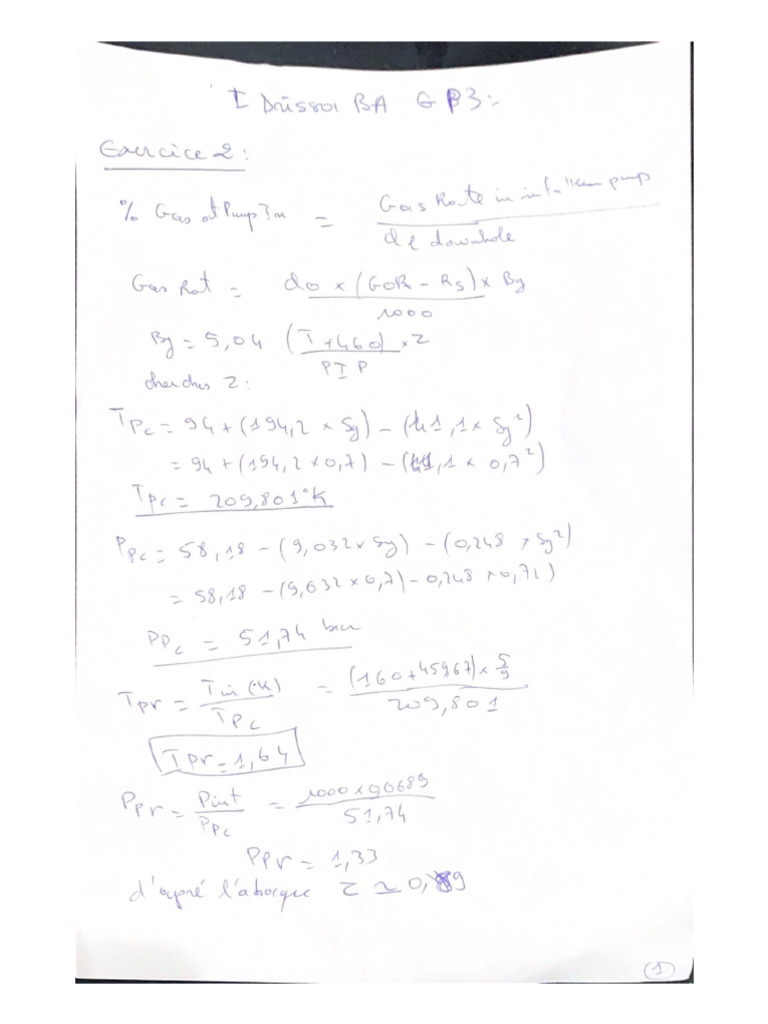 I Drissa BA GP3:
Exercice 2:
% Gas at Pump In = Gas Rate in intaken pump / Ql downhole
Gas Rat = do × (GOR - Rs) × Bg / 1000
Bg = 5,04 (T+460) × Z / PIP
cherches Z:
TPc = 94 + (194,2 × Sg) - (41,1 × Sg²)
= 94 + (194,2 × 0,7) - (41,1 × 0,7²)
TPc = 209,801°K
PPc = 58,18 - (9,032 × Sg) - (0,248 × Sg²)
= 58,18 - (9,032 × 0,7) - 0,248 × 0,72)
PPc = 51,74 bar
Tpr = Tin (°K) / TPc = (160 + 45967) × 5/9 / 209,801
Tpr = 1,64
Ppr = Pint / PPc = 1000 × 90689 / 51,74
Ppr = 1,33
d'apré l'abaque Z ≃ 0,89
1